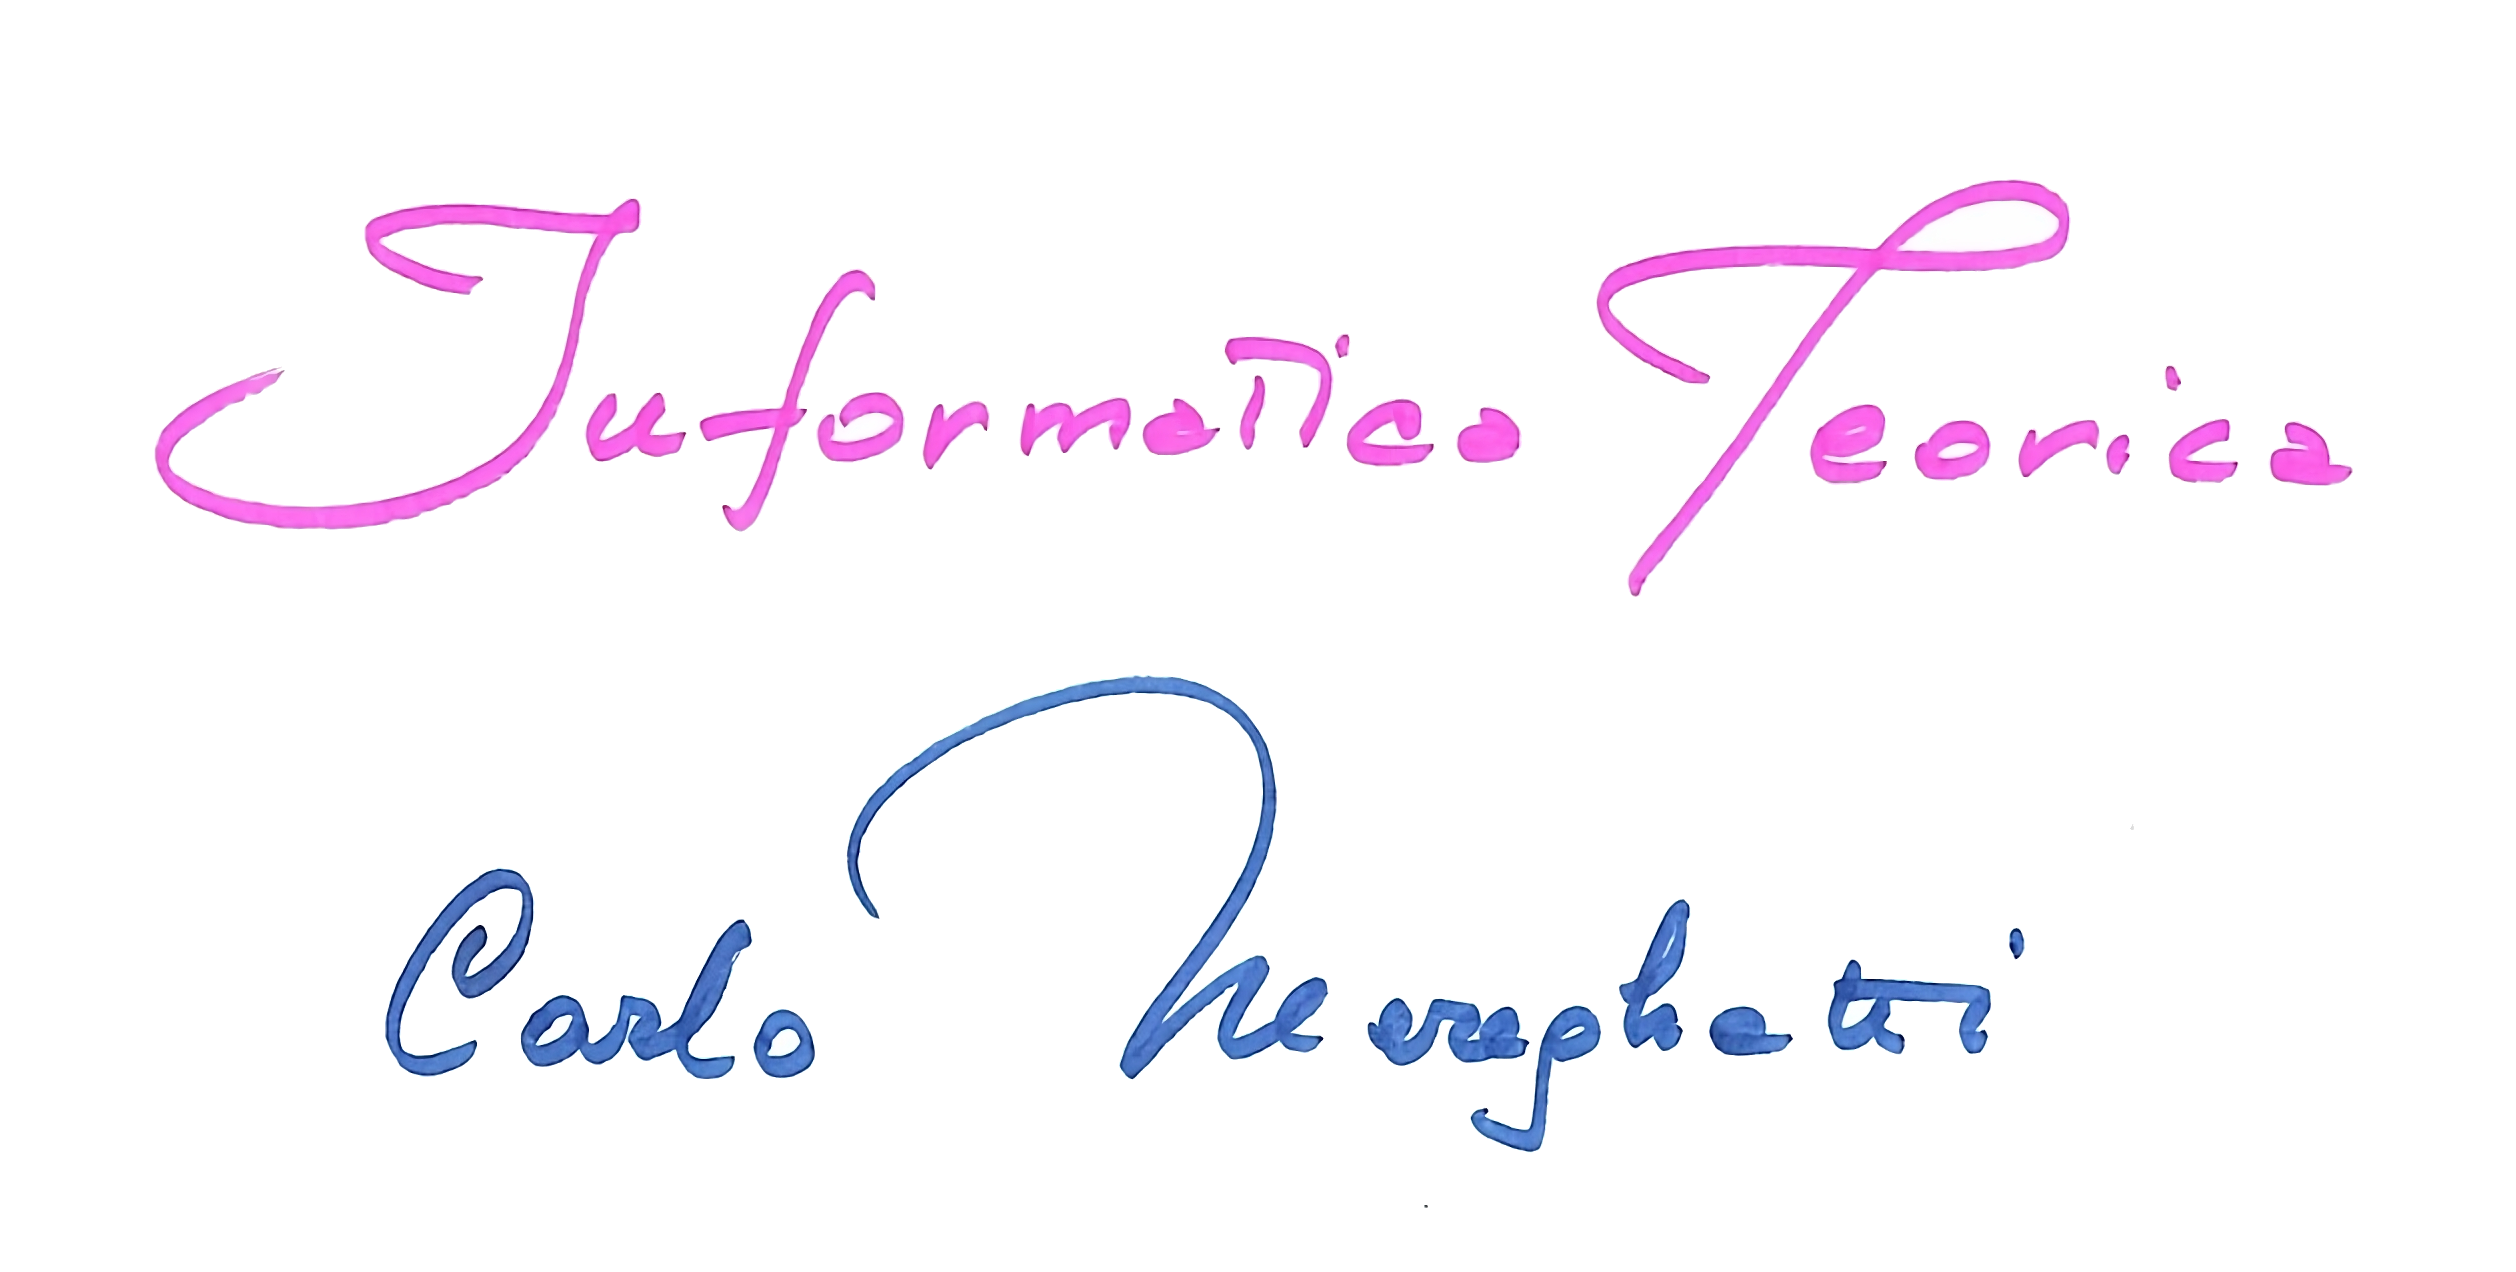 Informatica Teorica
Carlo Mereghetti